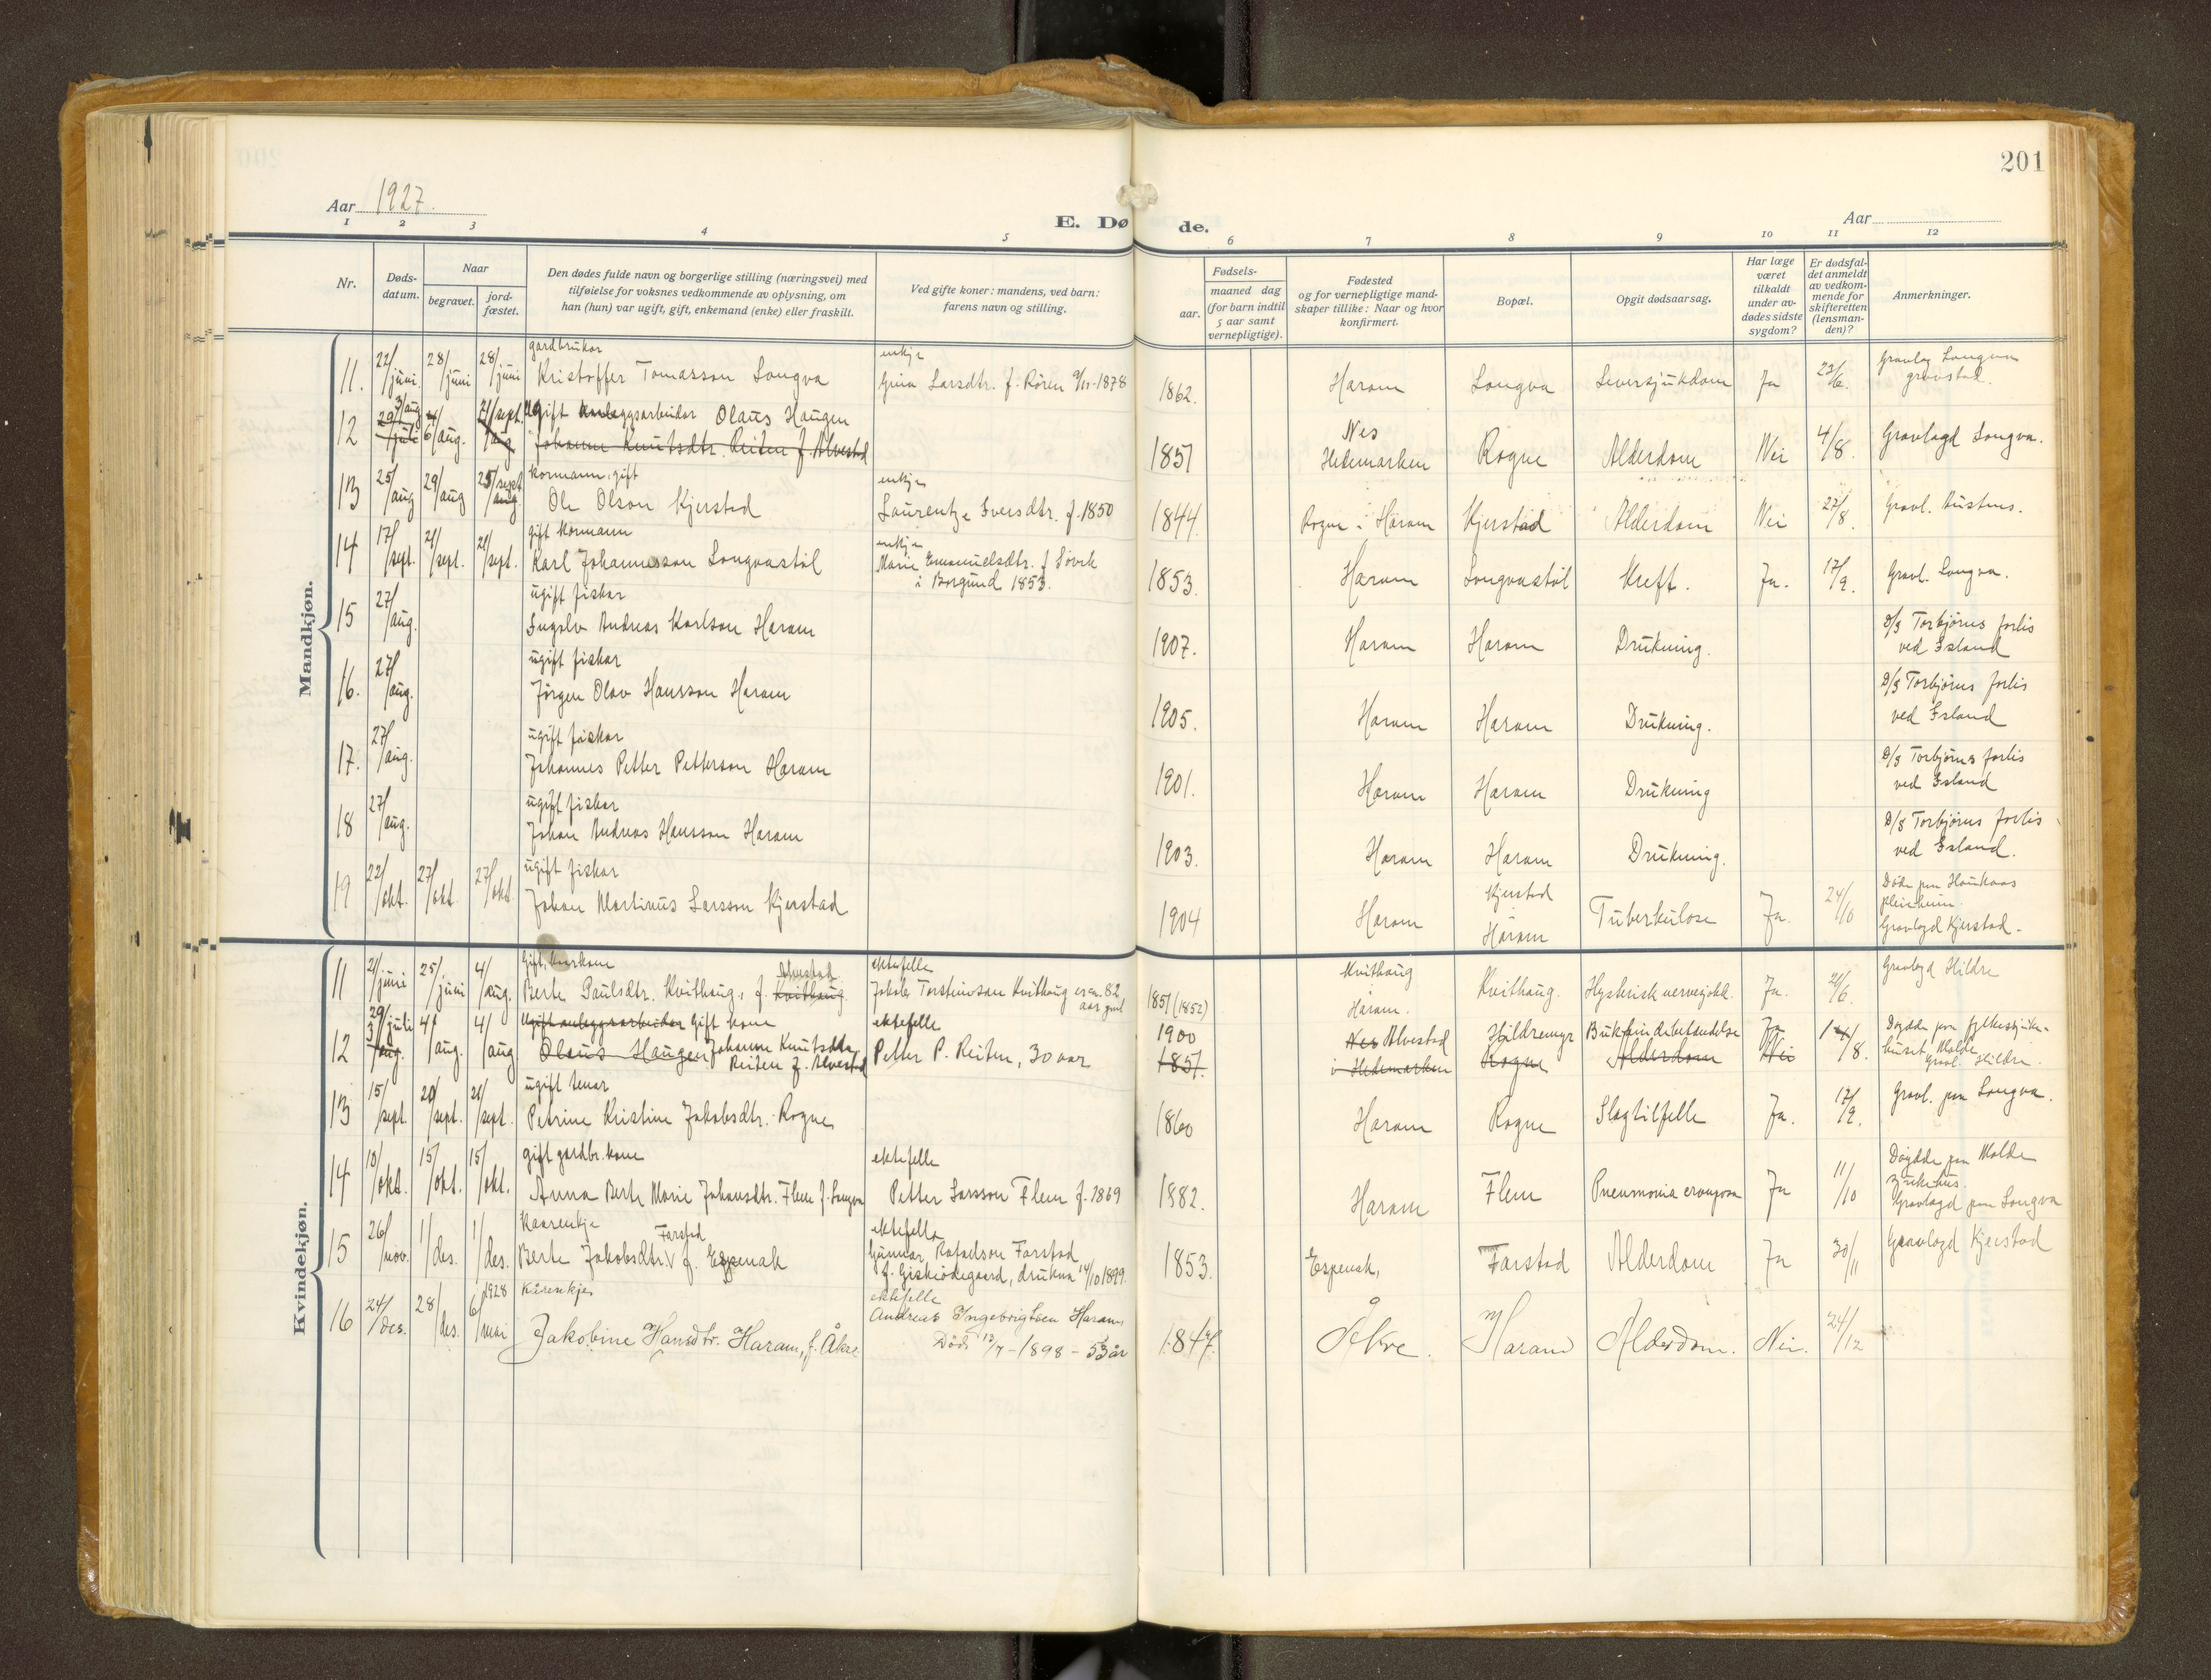 201
Aar 1927.
E. Døde.
Aar
1 2 3 4 5 6 7 8 9 10 11 12
Nr.
Døds-
datum.
Naar
begravet.
jord-
fæstet.
Den dødes fulde navn og borgerlige stilling (næringsvei) med
tilføielse for voksnes vedkommende av oplysning, om
han (hun) var ugift, gift, enkemand (enke) eller fraskilt.
Ved gifte koner: mandens, ved barn:
farens navn og stilling.
Fødsels-
aar.
maaned dag
(for barn indtil
5 aar samt
vernepligtige).
Fødested
og for vernepligtige mand-
skaper tillike: Naar og hvor
konfirmert.
Bopæl.
Opgit dødsaarsag.
Har læge
været
tilkaldt
under av-
dødes sidste
sygdom?
Er dødsfal-
det anmeldt
av vedkom-
mende for
skifteretten
(lensman-
den)?
Anmerkninger.
Mandkjøn.
gardbrukar enkje
11. 22/juni. 28/juni 28/juni Kristoffer Tomasson Longva Gina Larsdtr. f. Røren 1878 1862. Haram Longva Leversjukdom Ja 23/6. Gravlag Longva
gravstad.
12 3/aug 6/aug. 21/sept. Ugift anleggsarbeider Olaus Haugen
Johanne Knutsdtr. Reiten f. Alvestad 1851 Nes
Hedemarken Rogne Alderdom Nei 4/8. Gravlagd Longva.
kormann, gift enkje
13 25/aug 29/aug 25/sept Ole Olson Kjerstad Laurentze Iversdtr. f. 1850 1844. Rogne i Haram Kjerstad Alderdom Nei 27/8. Gravl. Austnes.
gift kormann enkje
14 17/sept. 21/sept. 21/sept. Karl Johannesson Longvastøl Marie Emanuelsdtr. f. Søvik
i Borgund 1853. 1853. Haram Longvastøl Kreft. Ja. 17/9. Gravl. Longva.
ugift fiskar
15 27/aug. Ingolv Andreas Karlson Haram 1907. Haram Haram Drukning. D/S Torbjørns forlis
ved Island
ugift fiskar
16. 27/aug. Jørgen Olav Hansson Haram 1905. Haram Haram Drukning. D/S Torbjørns forlis
ved Island
ugift fiskar
17. 27/aug. Johannes Petter Petterson Haram 1901. Haram Haram Drukning D/S Torbjørns forlis
ved Island
ugift fiskar
18 27/aug. Johan Andreas Hansson Haram 1903. Haram Haram Drukning. D/S Torbjørns forlis
ved Island.
ugift fiskar
19 22/okt. 27/okt. 27/okt. Johan Martinus Larsson Kjerstad 1904 Haram Kjerstad
Haram Tuberkulose Ja. 24/10 Døde paa Haukaas
pleieheim.
Gravlagd Kjerstad.
Kvindekjøn.
Gift, kaarkone Alvestad ektefelle
11 21/juni 25/juni 4/aug. Berte Paulsdtr. Kvithaug, f. Kvithaug Jakob Torsteinson Kvithaug 82
aar gml 1851 (1852) Kvithaug
Haram. Kvithaug. Hysterisk nervesjukd. Ja. 21/6. Gravlagd Hildre
Ugift anleggsarbeider Gift kone ektefelle
12 29/juli 3/aug. 4/aug. 4/aug. Olaus Haugen Johanne Knutsdtr.
Reiten f. Alvestad Petter P. Reiten, 30 aar 1900
1851. Nes Alvestad
i Hedemarken Hildremyr
Rogne Bukhindebetændelse
Alderdom Ja
Nei 4/8. Døydde paa fylkessjuke-
huset Molde
Gravl. Hildre.
ugift tenar
13 15/sept. 20/sept. 20/sept. Petrine Kristine Jakobsdtr. Rogne 1860 Haram Rogne Slagtilfelle Ja. 17/9. Gravl. paa Longva.
gift gardbr. kone ektefelle
14 10/okt. 15/okt. 15/okt. Anna Berte Marie Johansdtr. Flem f. Longva Petter Larsson Flem f. 1869 1882. Haram Flem Pneumonia crouposa Ja 11/10 Døydde paa Molde
sjukehus.
Gravlagd paa Longva
Kaarenkje Farstad ektefelle
15 26/nov. 1/des. 1/des. Berte Jakobsdtr. V f. Espenak Gunnar Rafaelson Farstad
f. Giskeødegaard, drukna 14/10 1899. 1853. Espenak, Farstad Alderdom Ja 30/11 Gravlagd Kjerstad
1928 Kårenkje ektefelle
16 24/des. 28/des. 6/mai Jakobine Hansdtr. Haram, f. Åkre. Andreas Ingebrigtsen Haram,
Død 13/7 - 1898 - 53 år 1847. Åkre. Haram Alderdom. Nei. 24/12